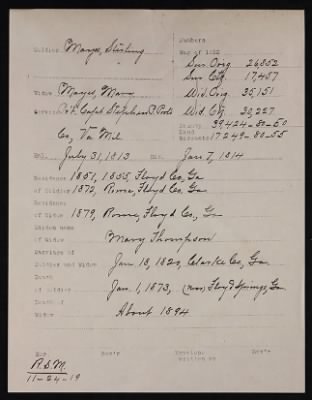 Numbers
Soldier Mayes, Stirling War of 1812
Sur. Orig. 26,852
Sur. Ctf. 17,457
Widow Mayes, Mary Wid. Orig. 35,151
Service Pvt. Capt. Stephen P. Wid. Ctf. 30,227
Bounty 39,424-80-50
Co, Va Mil Land
Warrants 17,249-80-55
Enl. July 31, 1813 Dis. Jan 7, 1814
Residence 1851, 1855, Floyd Co, Ga
of Soldier 1872, Rome, Floyd Co, Ga
Residence
of Widow 1879, Rome, Floyd Co, Ga
Maiden name
of Widow Mary Thompson
Marriage of
Soldier and Widow Jan. 18, 1820, Clarke Co, Ga.
Death
of Soldier Jan. 1, 1873, (near) Floyd Springs, Ga
Death of
Widow About 1894
R.S.M.
11-24-19